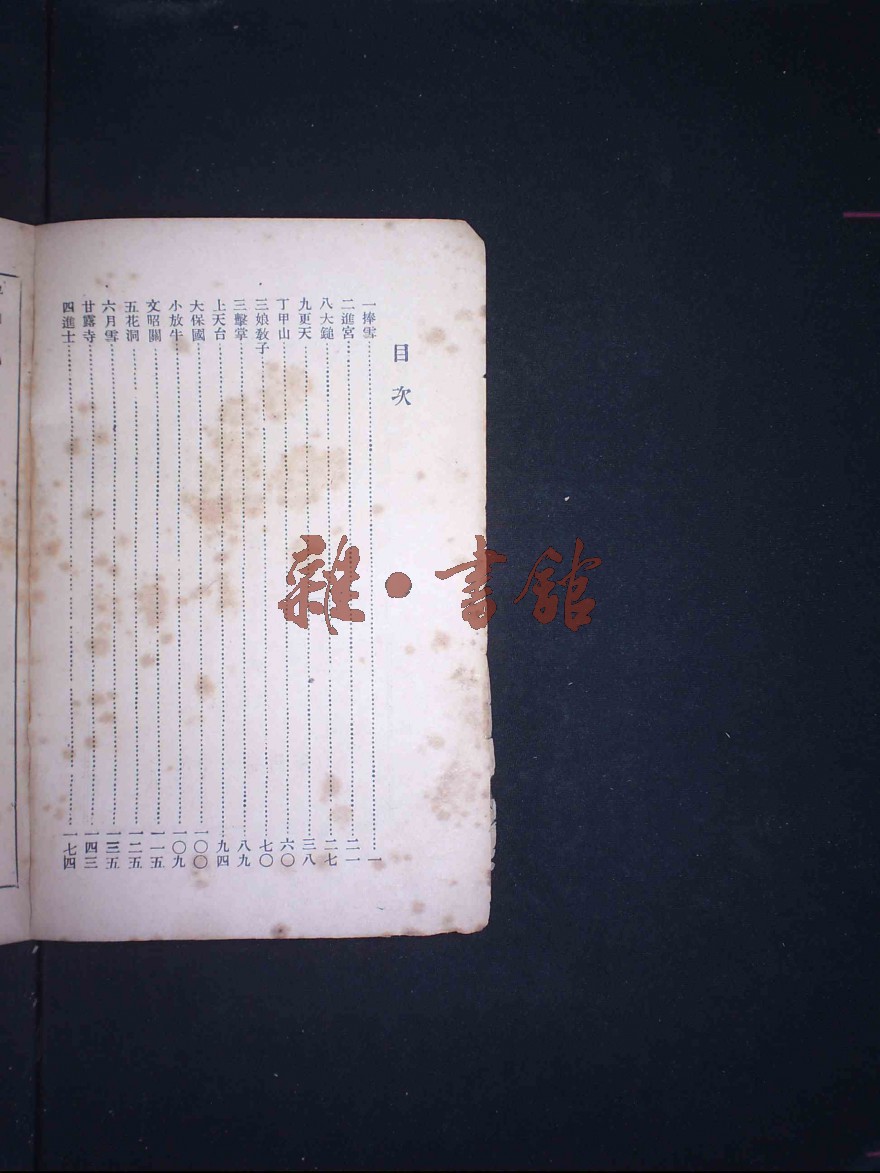 目次
一捧雪……一
二進宮……二一
八大鎚……二七
九更天……三八
丁甲山……六〇
三娘教子……七〇
三擊掌……八九
上天台……九四
大保國……一〇〇
小放牛……一〇九
文昭關……一一五
五花洞……一二五
六月雪……一三五
甘露寺……一四三
四進士……一七四
雜•書館